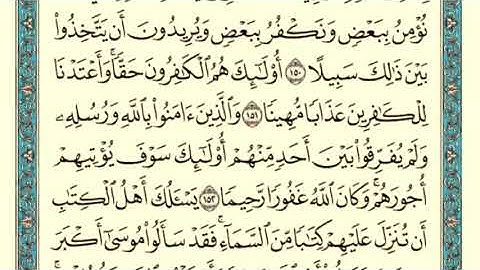 نُؤْمِنُ بِبَعْضٍ وَنَكْفُرُ بِبَعْضٍ وَيُرِيدُونَ أَن يَتَّخِذُوا۟
بَيْنَ ذَٰلِكَ سَبِيلًا ۝١٥٠ أُو۟لَـٰٓئِكَ هُمُ ٱلْكَـٰفِرُونَ حَقًّا ۚ وَأَعْتَدْنَا
لِلْكَـٰفِرِينَ عَذَابًا مُّهِينًا ۝١٥١ وَٱلَّذِينَ ءَامَنُوا۟ بِٱللَّهِ وَرُسُلِهِۦ
وَلَمْ يُفَرِّقُوا۟ بَيْنَ أَحَدٍ مِّنْهُمْ أُو۟لَـٰٓئِكَ سَوْفَ يُؤْتِيهِمْ
أُجُورَهُمْ ۗ وَكَانَ ٱللَّهُ غَفُورًا رَّحِيمًا ۝١٥٢ يَسْـَٔلُكَ أَهْلُ ٱلْكِتَـٰبِ
أَن تُنَزِّلَ عَلَيْهِمْ كِتَـٰبًا مِّنَ ٱلسَّمَآءِ ۚ فَقَدْ سَأَلُوا۟ مُوسَىٰٓ أَكْبَرَ